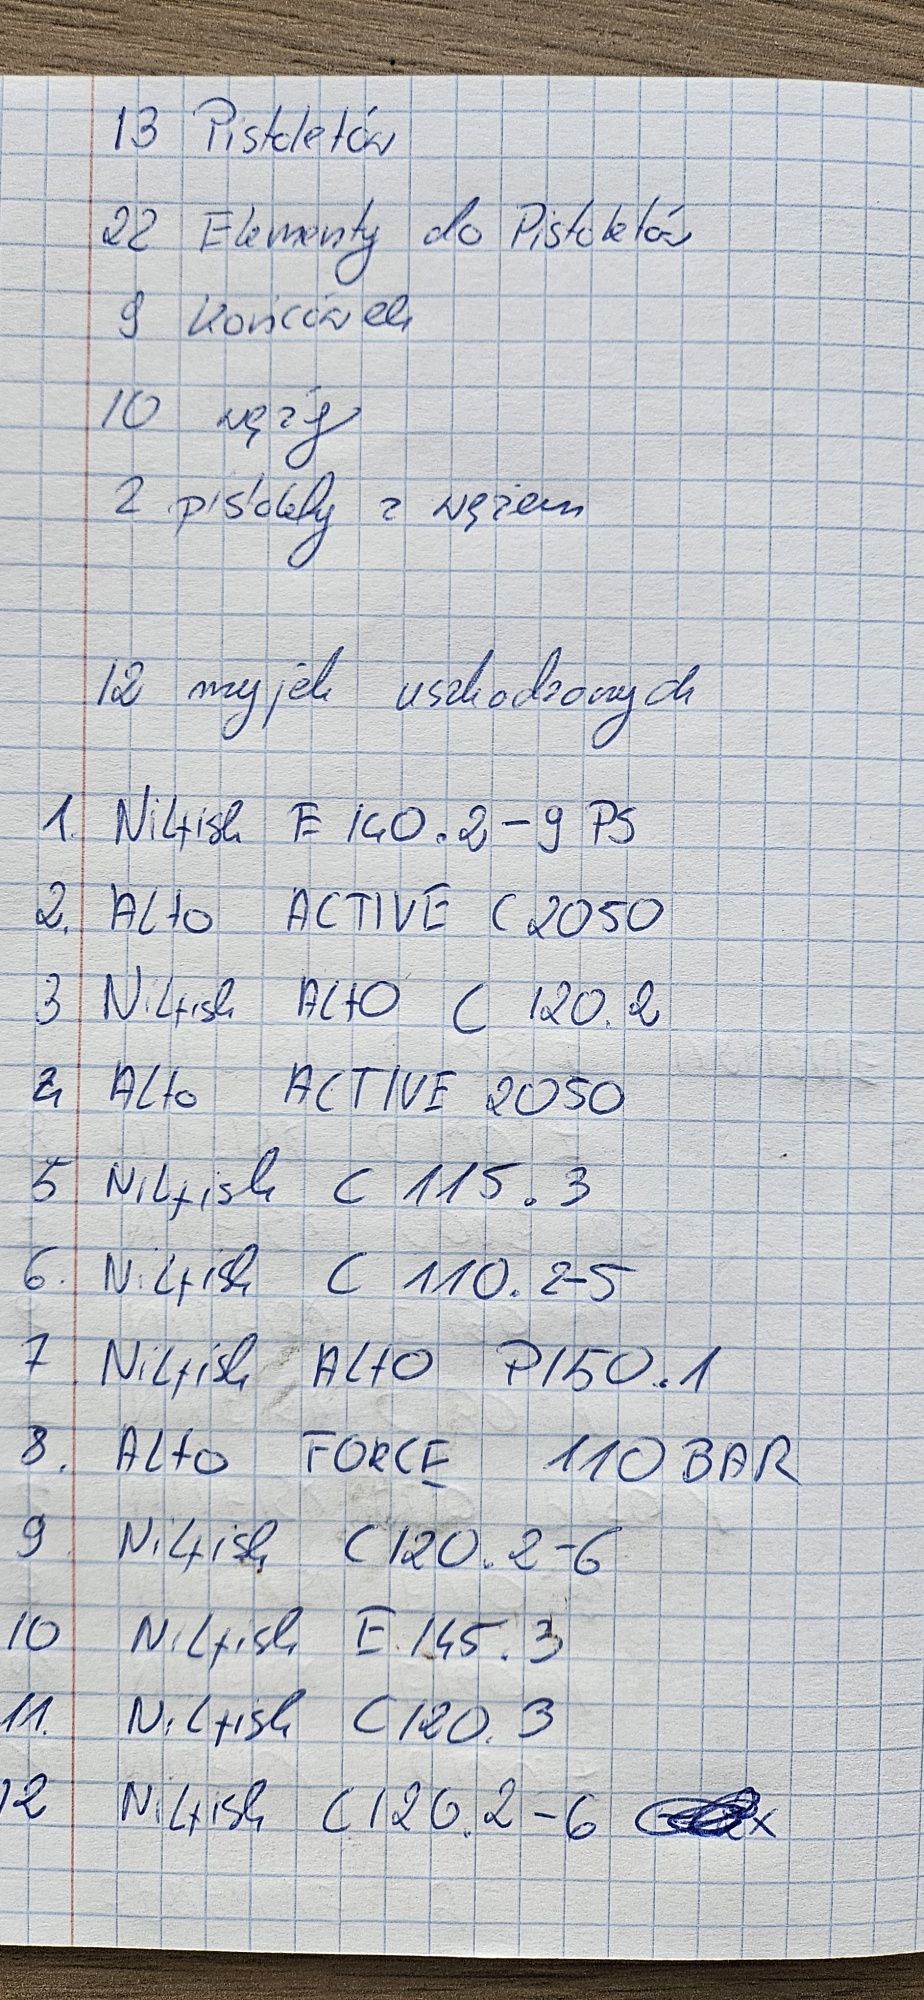 13 Pistoletów
22 Elementy do Pistoletów
9 końcówek
10 węży
2 pistolety z wężem
12 myjek uszkodzonych
1. Nilfisk E 140.2-9 PS
2. Alto ACTIVE C 2050
3 Nilfisk ALTO C 120.2
4 Alto ACTIVE 2050
5 Nilfisk C 115.3
6. Nilfisk C 110.2-5
7 Nilfisk ALTO P150.1
8. Alto FORCE 110 BAR
9 Nilfisk C120.2-6
10 Nilfisk E 145.3
11. Nilfisk C120.3
12 Nilfisk C120.2-6